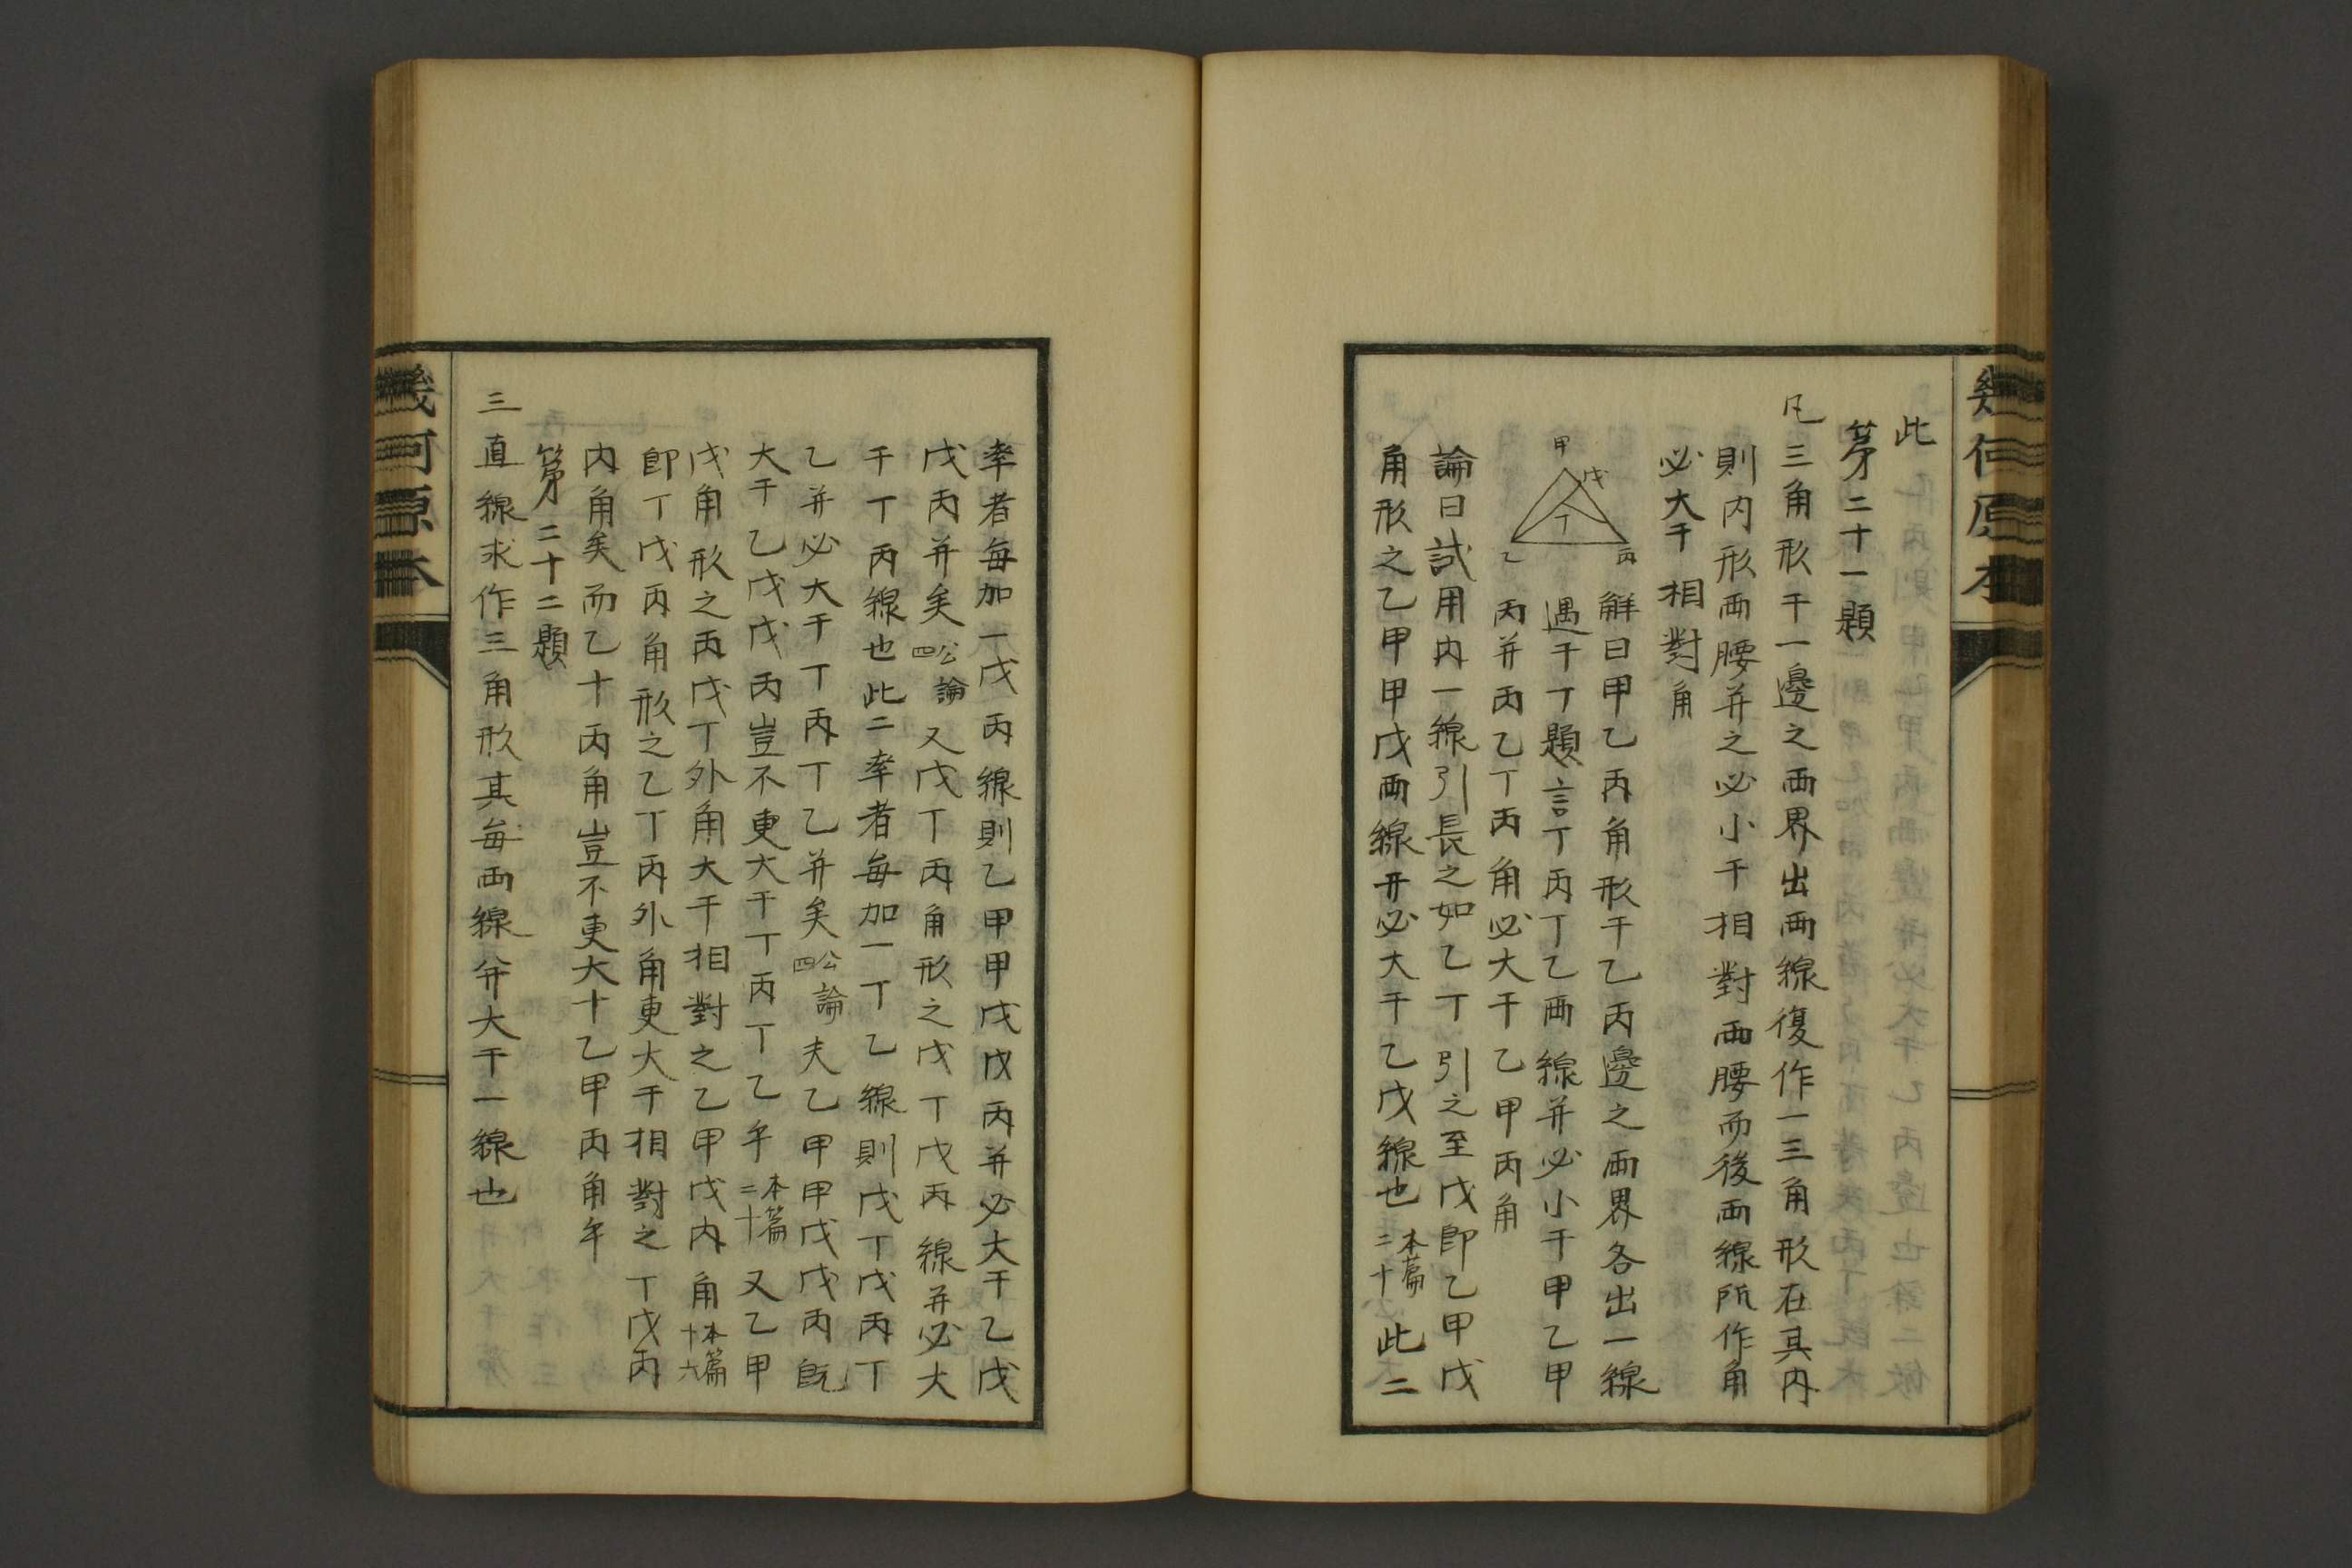 幾何原本
此
第二十一題
凡三角形于一邊之兩界出兩線復作一三角形在其内
則内形兩腰并之必小于相對兩腰而後兩線所作角
必大于相對角
甲
戊
丁
乙
丙
解曰甲乙丙角形于乙丙邊之兩界各出一線
遇于丁題言丁丙丁乙兩線并必小于甲乙甲
丙并丙乙丁丙角必大于乙甲丙角
論曰試用内一線引長之如乙丁引之至戊即乙甲戊
角形之乙甲甲戊兩線并必大于乙戊線也本篇二十此二
率者每加一戊丙線則乙甲甲戊戊丙并必大于乙戊
戊丙并矣公論四又戊丁丙角形之戊丁戊丙線并必大
于丁丙線也此二率者每加一丁乙線則戊丁戊丙丁
乙并必大于丁丙丁乙并矣公論四夫乙甲甲戊戊丙既
大于乙戊戊丙豈不更大于丁丙丁乙乎本篇二十又乙甲
戊角形之丙戊丁外角大于相對之乙甲戊内角本篇十六
即丁戊丙角形之乙丁丙外角更大于相對之丁戊丙
内角矣而乙十丙角豈不更大十乙甲丙角乎
第二十二題
三直線求作三角形其每兩線并大于一線也
幾何原本